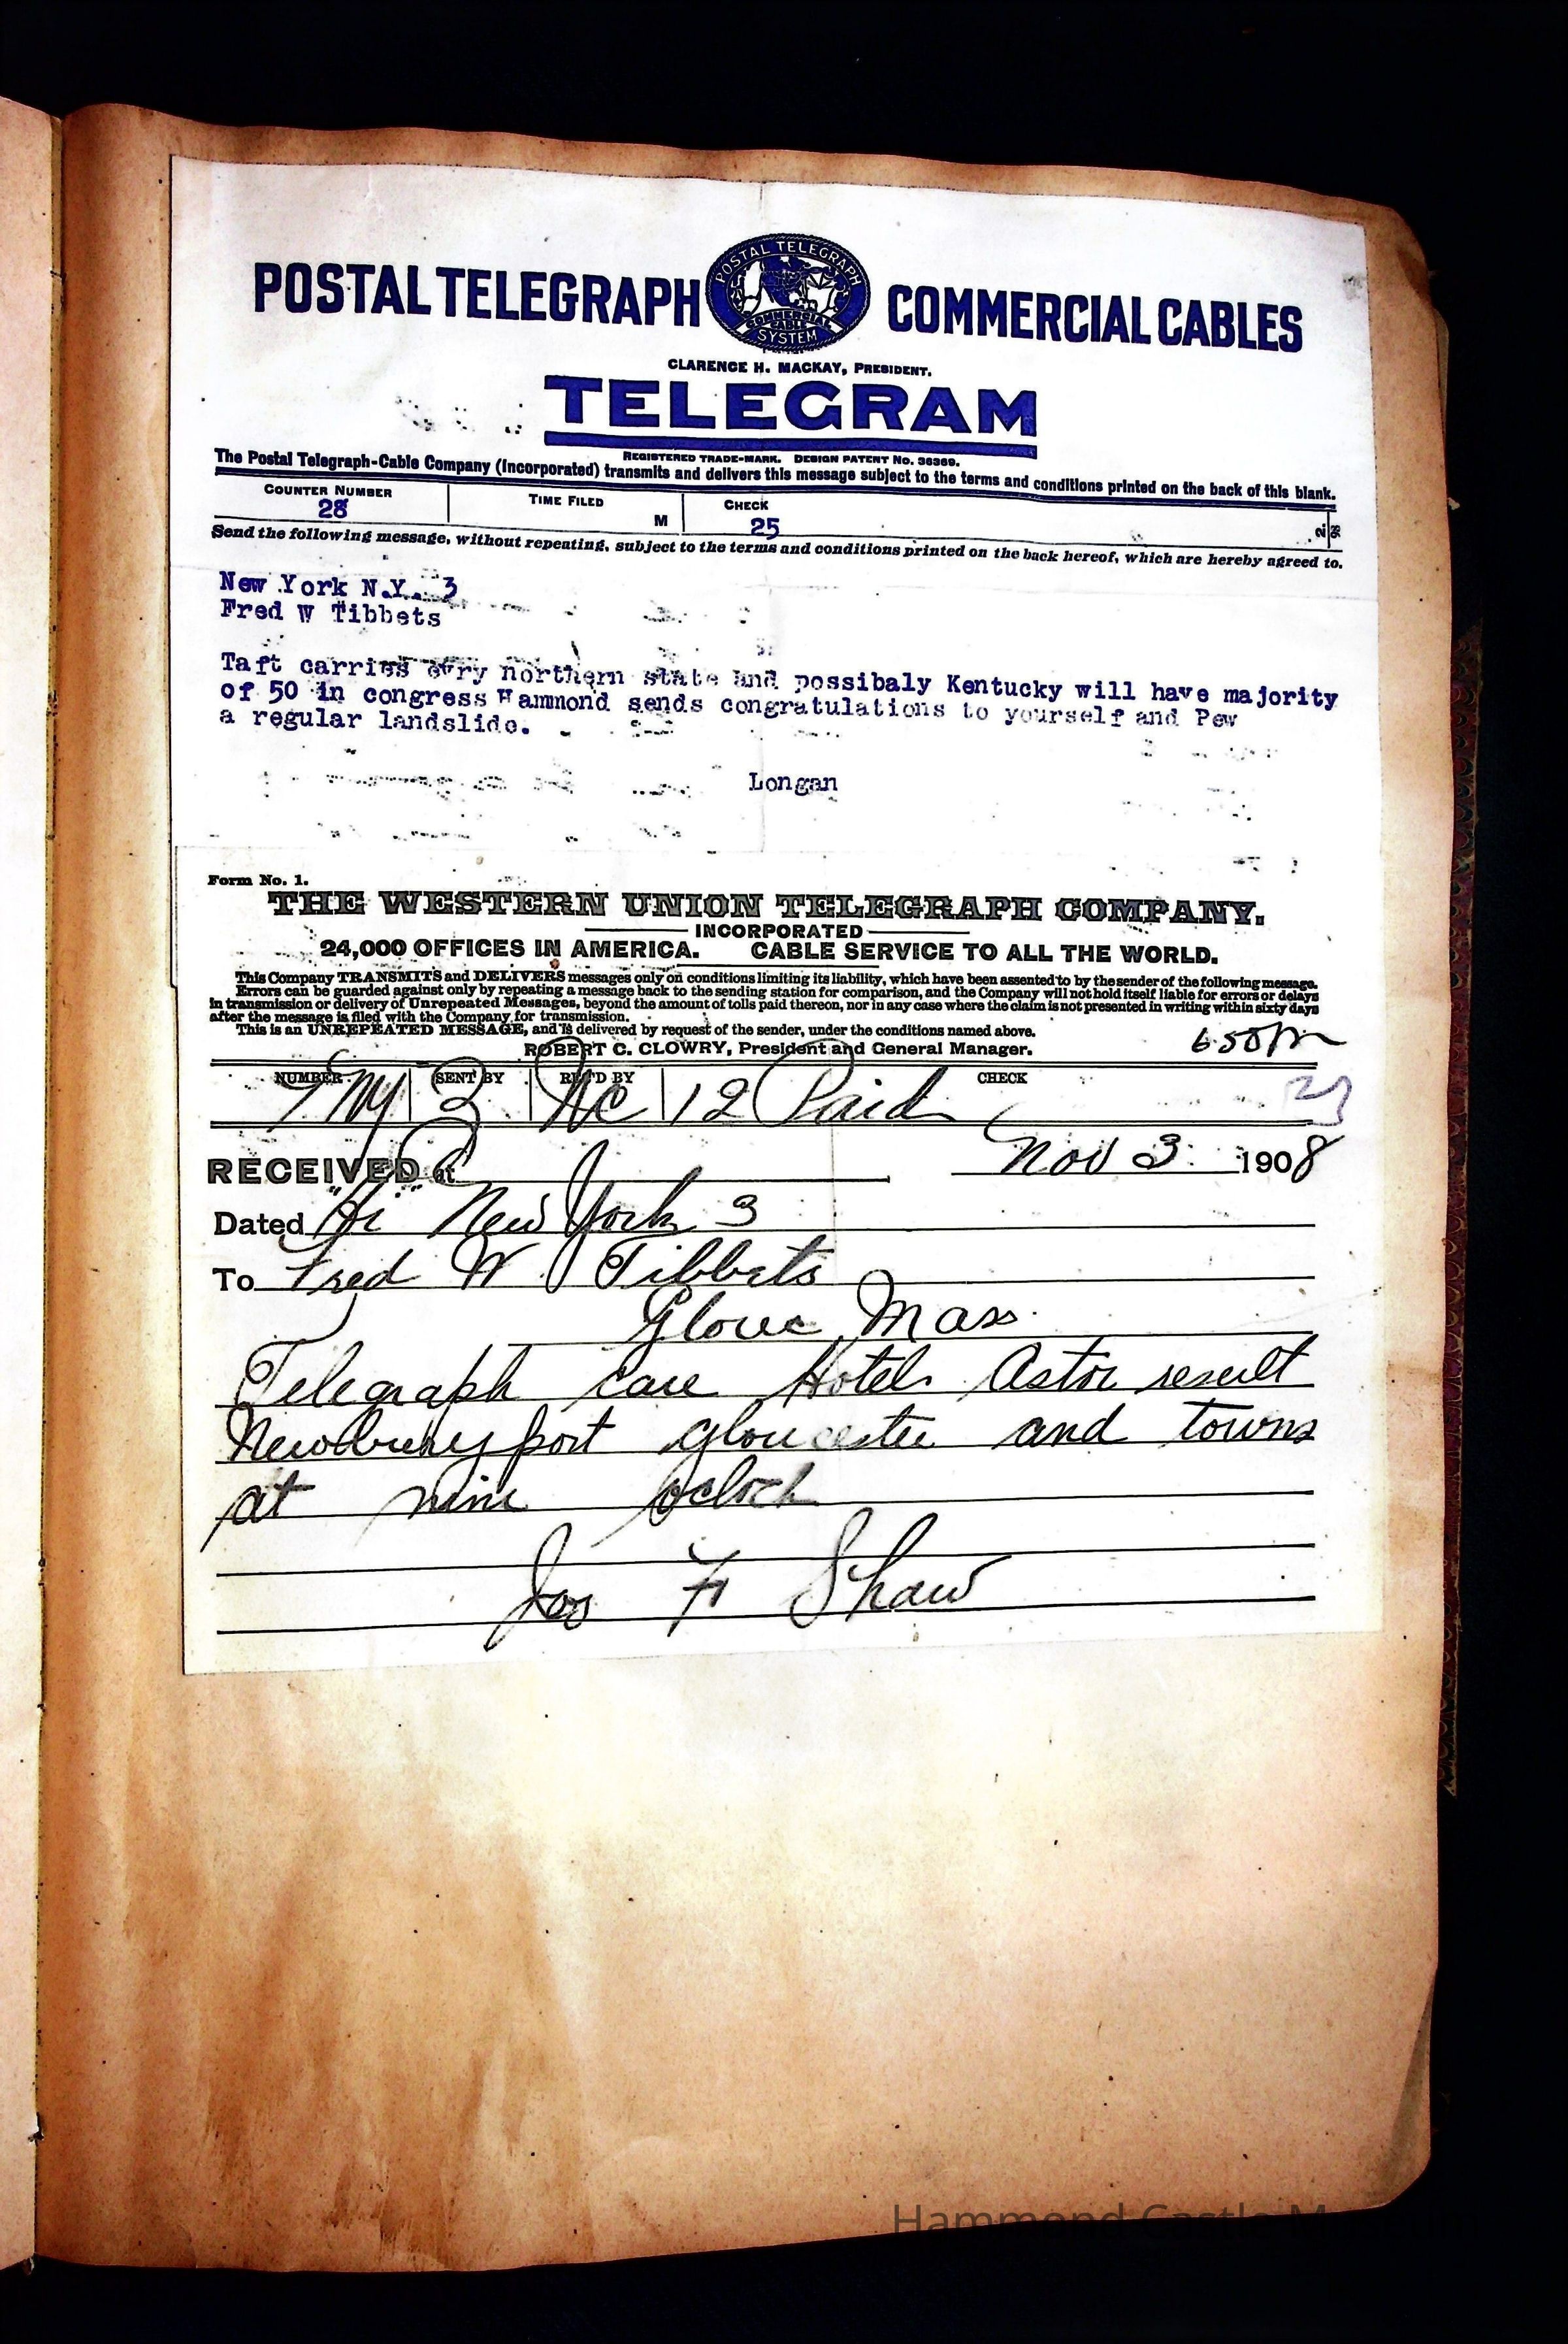 POSTAL TELEGRAPH COMMERCIAL CABLES
POSTAL TELEGRAPH
COMMERCIAL
CABLE
SYSTEM
CLARENCE H. MACKAY, PRESIDENT.
TELEGRAM
REGISTERED TRADE-MARK. DESIGN PATENT No. 36369.
The Postal Telegraph-Cable Company (Incorporated) transmits and delivers this message subject to the terms and conditions printed on the back of this blank.
COUNTER NUMBER TIME FILED CHECK
28 M 25
Send the following message, without repeating, subject to the terms and conditions printed on the back hereof, which are hereby agreed to.
New York N.Y. 3
Fred W Tibbets
Taft carries evry northern state and possibaly Kentucky will have majority
of 50 in congress Hammond sends congratulations to yourself and Pew
a regular landslide.
Longan
Form No. 1.
THE WESTERN UNION TELEGRAPH COMPANY.
INCORPORATED
24,000 OFFICES IN AMERICA. CABLE SERVICE TO ALL THE WORLD.
This Company TRANSMITS and DELIVERS messages only on conditions limiting its liability, which have been assented to by the sender of the following message.
Errors can be guarded against only by repeating a message back to the sending station for comparison, and the Company will not hold itself liable for errors or delays
in transmission or delivery of Unrepeated Messages, beyond the amount of tolls paid thereon, nor in any case where the claim is not presented in writing within sixty days
after the message is filed with the Company for transmission.
This is an UNREPEATED MESSAGE, and is delivered by request of the sender, under the conditions named above.
ROBERT C. CLOWRY, President and General Manager.
650Pm
NUMBER SENT BY REC'D BY CHECK
12 Paid
RECEIVED at Nov 3 1908
Dated New York 3
To Fred W Tibbets
Glouc Mass
Telegraph care Hotel Astor result
Newburyport Gloucester and towns
at nine oclock
Jos F Shaw
Hammond Castle M